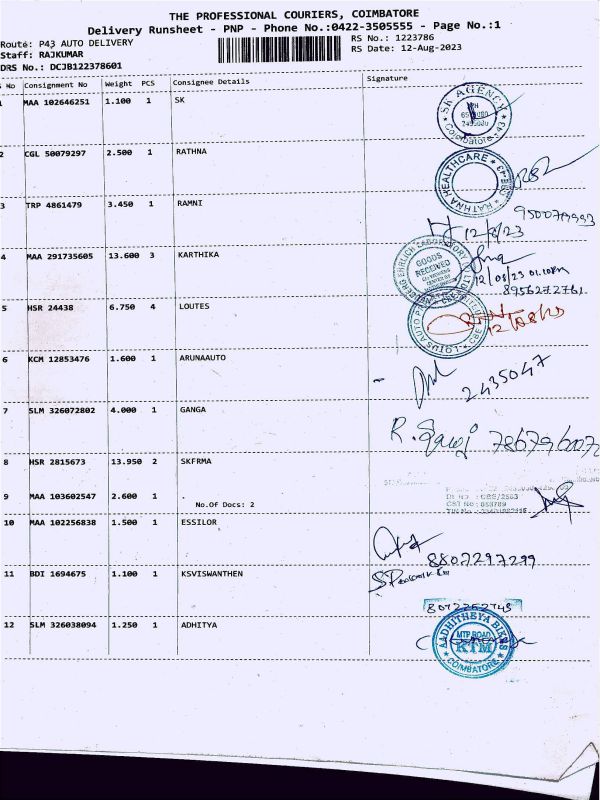 THE PROFESSIONAL COURIERS, COIMBATORE
Delivery Runsheet - PNP - Phone No.:0422-3505555 - Page No.:1
Route: P43 AUTO DELIVERY
RS No.: 1223786
Staff: RAJKUMAR
RS Date: 12-Aug-2023
DRS No.: DCJB122378601
No Consignment No Weight PCS Consignee Details Signature
1 MAA 102646251 1.100 1 SK
SK AGENCY
Coimbatore-43
2 CGL 50079297 2.500 1 RATHNA
RATHNA HEALTHCARE
3 TRP 4861479 3.450 1 RAMNI
12/8/23
4 MAA 291735605 13.600 3 KARTHIKA
GOODS
RECEIVED
12/08/23
8956272761
5 HSR 24438 6.750 4 LOUTES
LOTUS AUTO
6 KCM 12853476 1.600 1 ARUNAAUTO
2435047
7 SLM 326072802 4.000 1 GANGA
8 HSR 2815673 13.950 2 SKFRMA
9 MAA 103602547 2.600 1
No.Of Docs: 2
10 MAA 102256838 1.500 1 ESSILOR
8807297299
11 BDI 1694675 1.100 1 KSVISWANTHEN
12 SLM 326038094 1.250 1 ADHITYA
AADHITHEYA BIKES
MTP ROAD
KTM
COIMBATORE